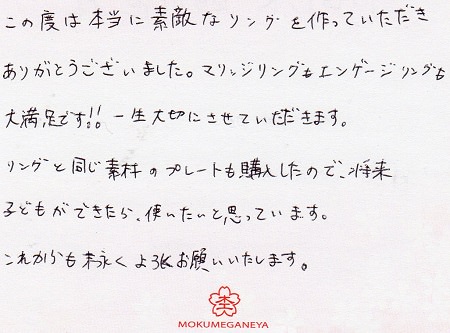 この度は本当に素敵なリングを作っていただき
ありがとうございました。マリッジリングもエンゲージリングも
大満足です!! 一生大切にさせていただきます。
リングと同じ素材のプレートも購入したので、将来
子どもができたら、使いたいと思っています。
これからも末永くよろしくお願いいたします。
杢
MOKUMEGANEYA